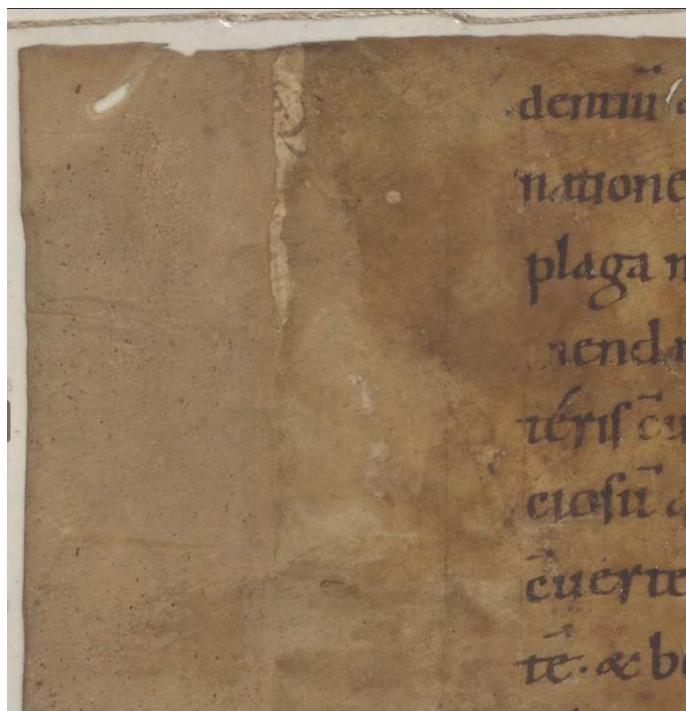 dentiū
natione
plaga n
ienda
téris c̄u
ciosū &
c̄uerte
tē. & b